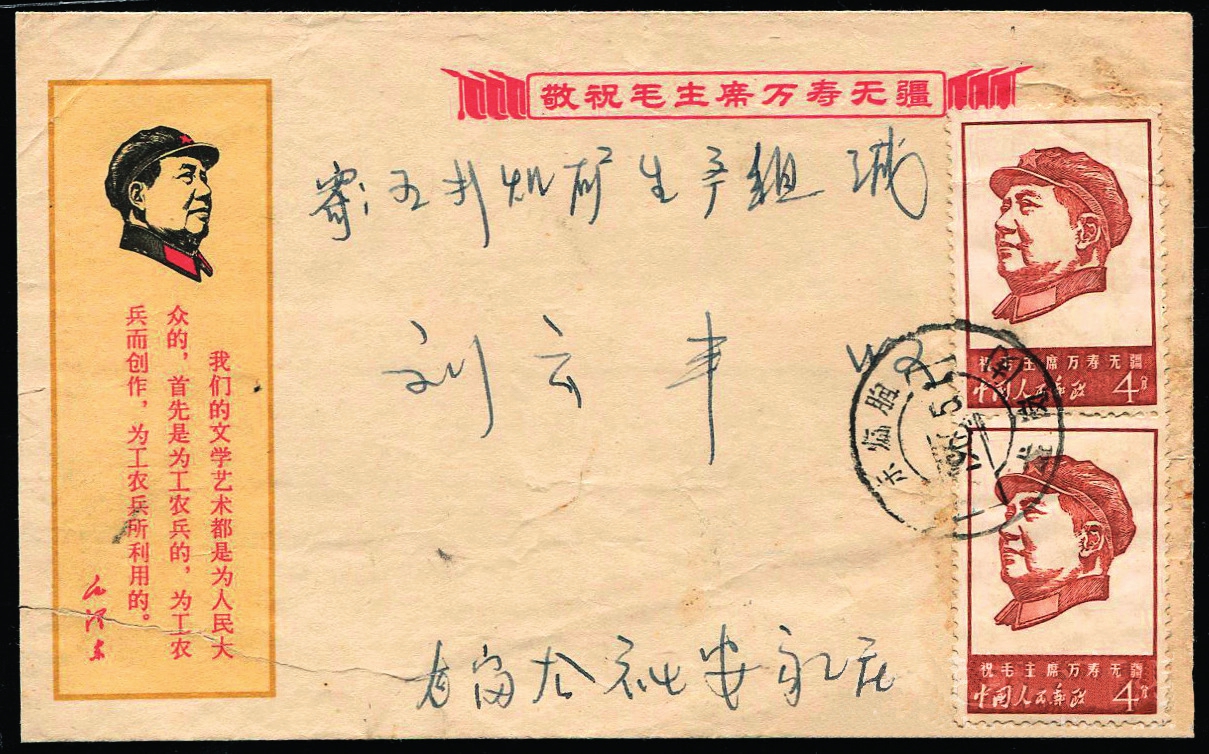 敬祝毛主席万寿无疆
我们的文学艺术都是为人民大
众的，首先是为工农兵的，为工农
兵而创作，为工农兵所利用的。
毛泽东
寄：五 矿生产组
刘云丰
太社安永庄
祝毛主席万寿无疆
中国人民邮政 4分
祝毛主席万寿无疆
中国人民邮政 4分